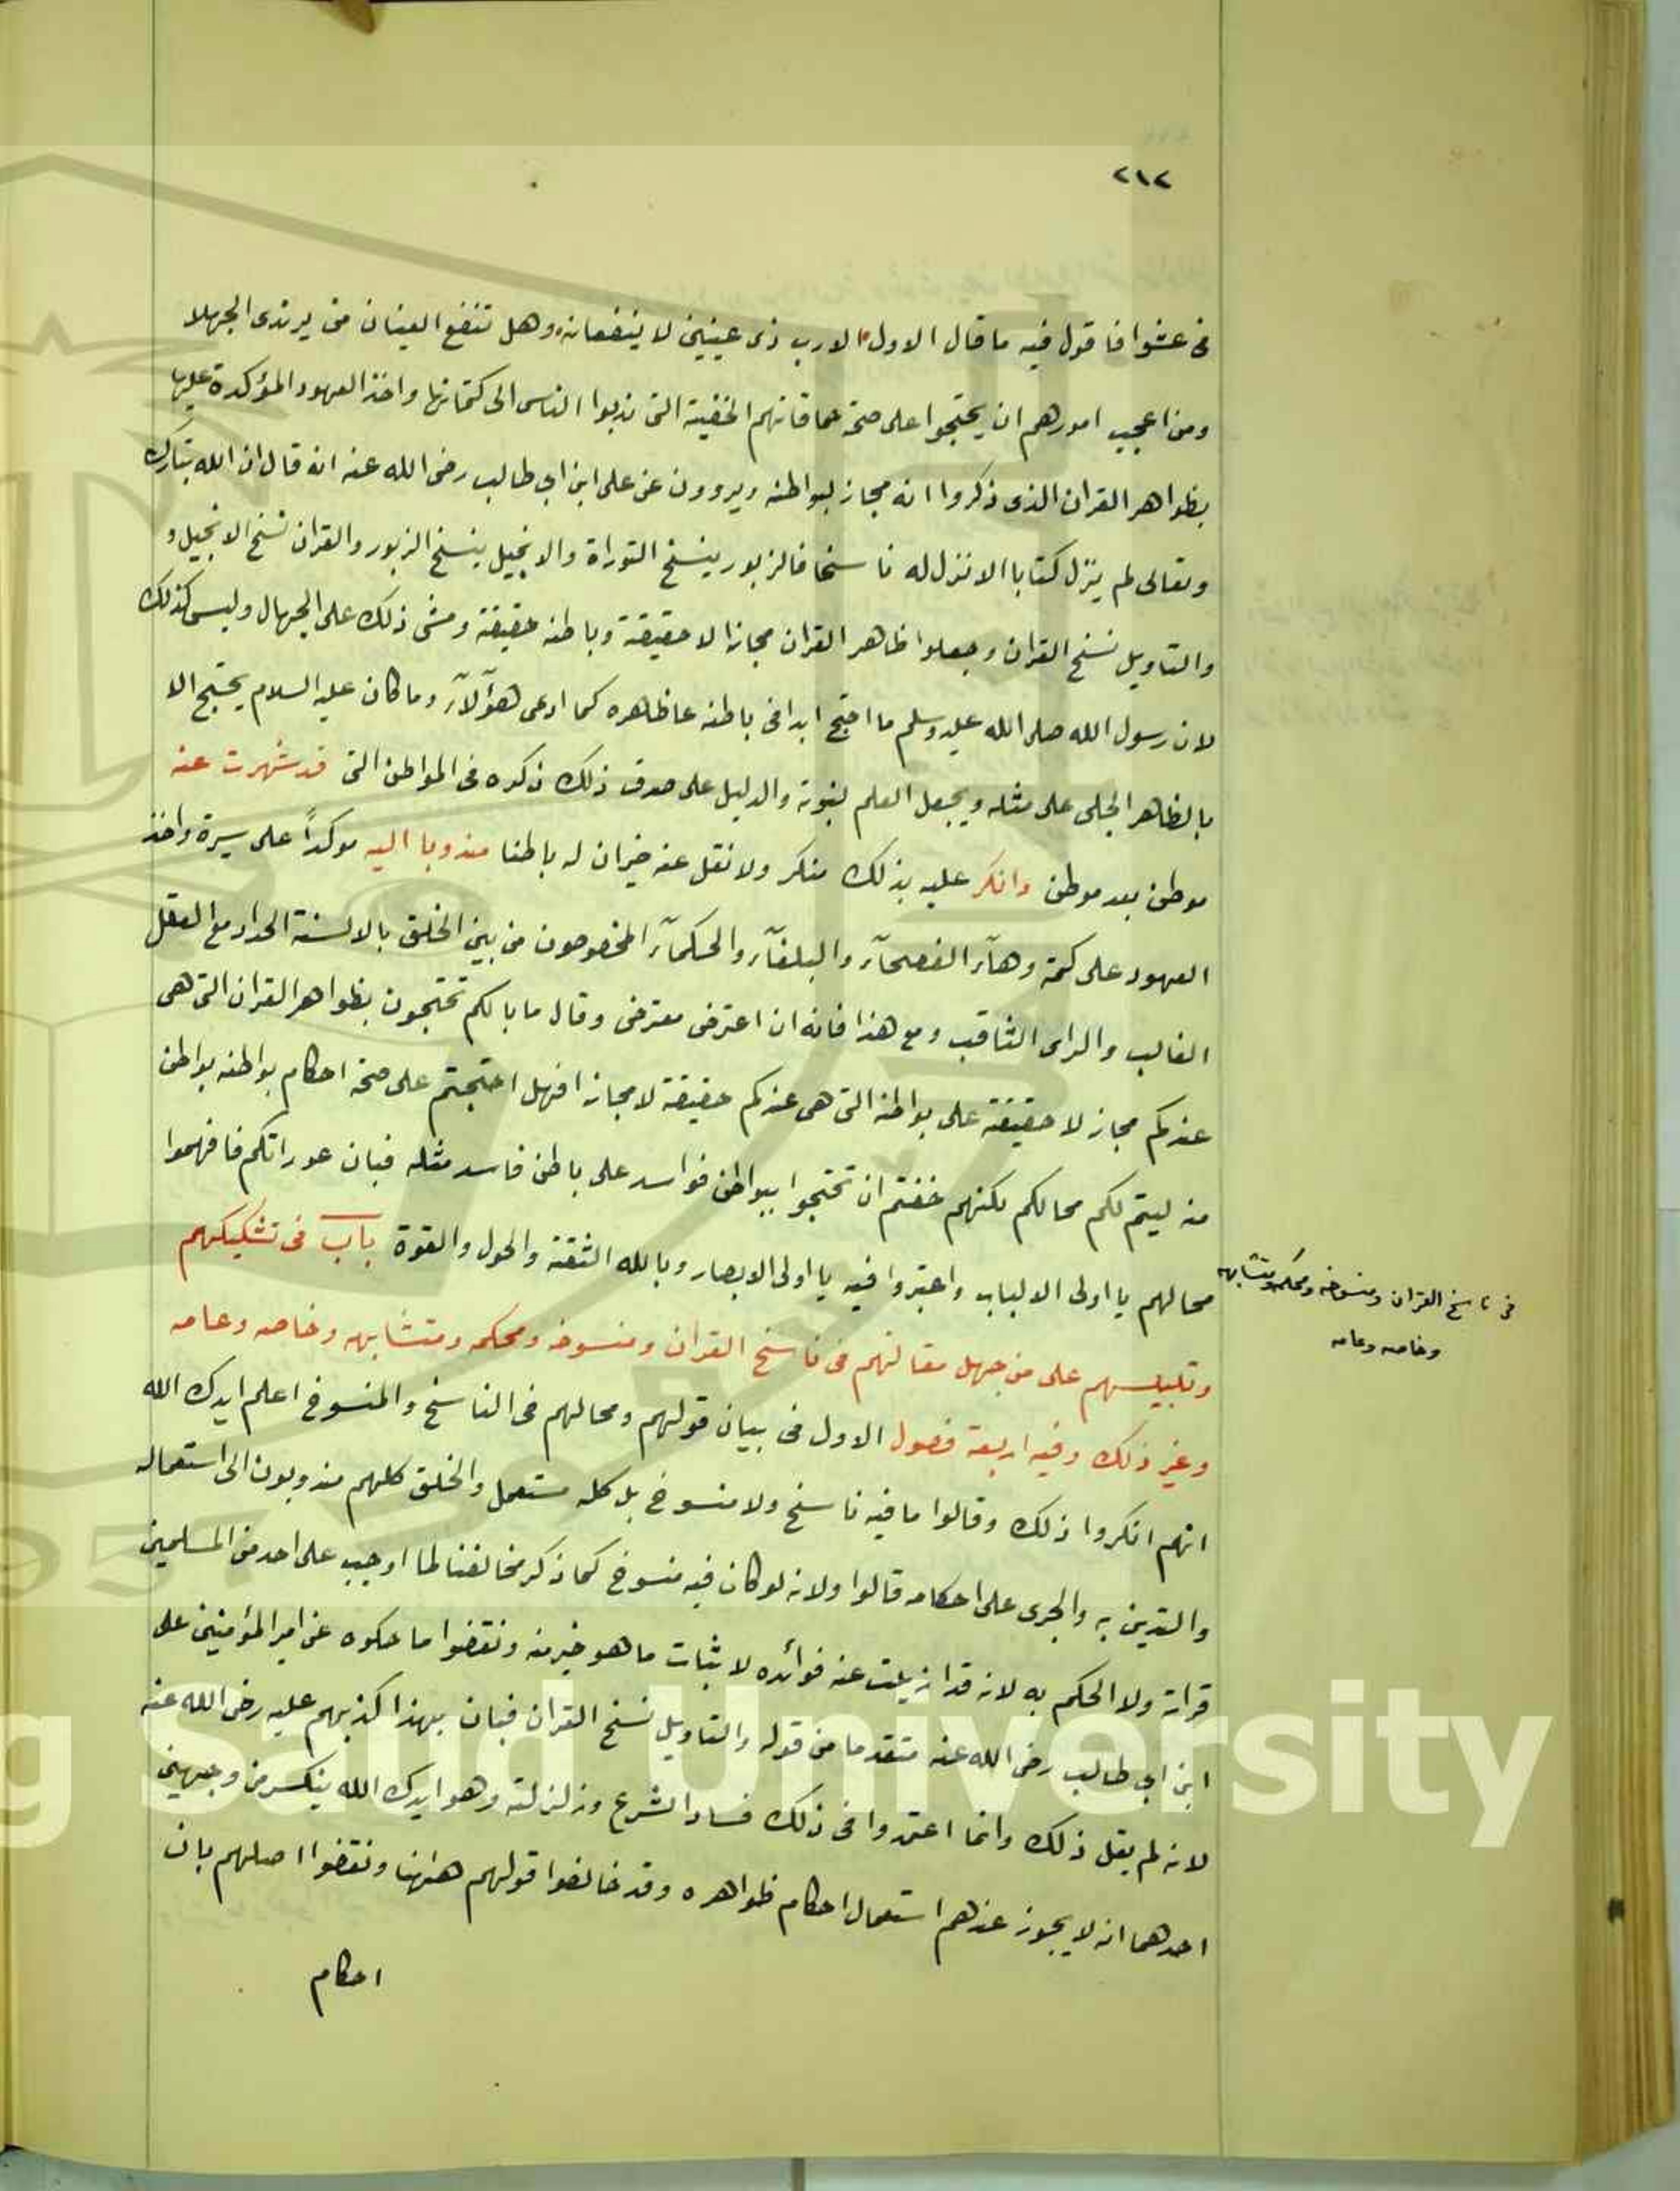 ٢١٢
فى عشوا فاقول فيه ما قال الاول الارب ذى عينين لا ينفعانه وهل تنفع العينان من يرتدى الجهلا
ومن اعجب امورهم ان يحتجوا على صحة حماقاتهم الخفية التى ندبوا الناس الى كتمانها واخذ العهود المؤكدة عليها
بظواهر القران الذى ذكروا انه مجاز لبواطنه ويروون عن على ابن ابى طالب رضى الله عنه انه قال ان الله تبارك
وتعالى لم ينزل كتابا الا نزل له ناسخا فالزبور ينسخ التوراة والانجيل ينسخ الزبور والقران نسخ الانجيل و
والتاويل نسخ القران وجعلوا ظاهر القران مجازا لا حقيقة وباطنه حقيقة ومشى ذلك على الجهال وليس كذلك
لان رسول الله صلى الله عليه وسلم ما احتج ابدا فى باطنه عا ظاهره كما ادعى هؤلآء وما كان عليه السلام يحتج الا
بالظاهر الجلى على مثله ويجعل العلم لنبوته والدليل على صدق ذلك ذكره فى المواطن التى قد شهرت عنه
موطن بعد موطن وانكر عليه بذلك منكر ولا نقل عنه خبران له باطنا مندوبا اليه موكداً على سيرة واخذ
العهود على كتمة وهآء الفصحآء والبلغآء والحكمآء المخصوصون من بين الخلق بالالسنة الحداد مع العقل
الغالب والراى الثاقب ومع هذا فانه ان اعترض معترض وقال ما بالكم تحتجون بظواهر القران التى هى
عندكم مجاز لا حقيقة على بواطنه التى هى عندكم حقيقة لا مجازا فهل احتججتم على صحة احكام بواطنه بواطن
منه ليتم لكم محالكم لكنهم خفتم ان تحتجوا ببواطن فواسد على باطن فاسد مثله فبان عوراتكم فافهموا
محالهم يا اولى الالباب واعتبروا فيه يا اولى الابصار وبالله الثقة والحول والقوة باب فى تشكيكهم
وتلبيسهم على من جهل مقالتهم فى ناسخ القران ومنسوخه ومحكمه ومتشابهه وخاصه وعامه
وغير ذلك وفيه اربعة فصول الاول فى بيان قولهم ومحالهم فى الناسخ والمنسوخ اعلم ايدك الله
انهم انكروا ذلك وقالوا ما فيه ناسخ ولا منسوخ بل كله مستعمل والخلق كلهم مندوبون الى استعماله
والتدين به والجرى على احكامه قالوا ولانه لو كان فيه منسوخ كما ذكر مخالفنا لما اوجب على احد من المسلمين
قراته ولا الحكم به لانه قد ازيلت عنه فوائده لاثبات ما هو خير منه ونقضوا ما حكوه عن امير المؤمنين على
ابن ابى طالب رضى الله عنه متقدما من قوله والتاويل نسخ القران فبان بهذا كذبهم عليه رضى الله عنه
لانه لم يقل ذلك وانما اعتمدوا فى ذلك فساد الشرع وزلزلته وهو ايدك الله ينكسر من وجهين
احدهما انه لا يجوز عندهم استعمال احكام ظواهره وقد خالفوا قولهم ههنا ونقضوا اصلهم بان
احكام
فى ناسخ القران ومنسوخه ومحكمه ومتشابهه
وخاصه وعامه
g Saud University
957